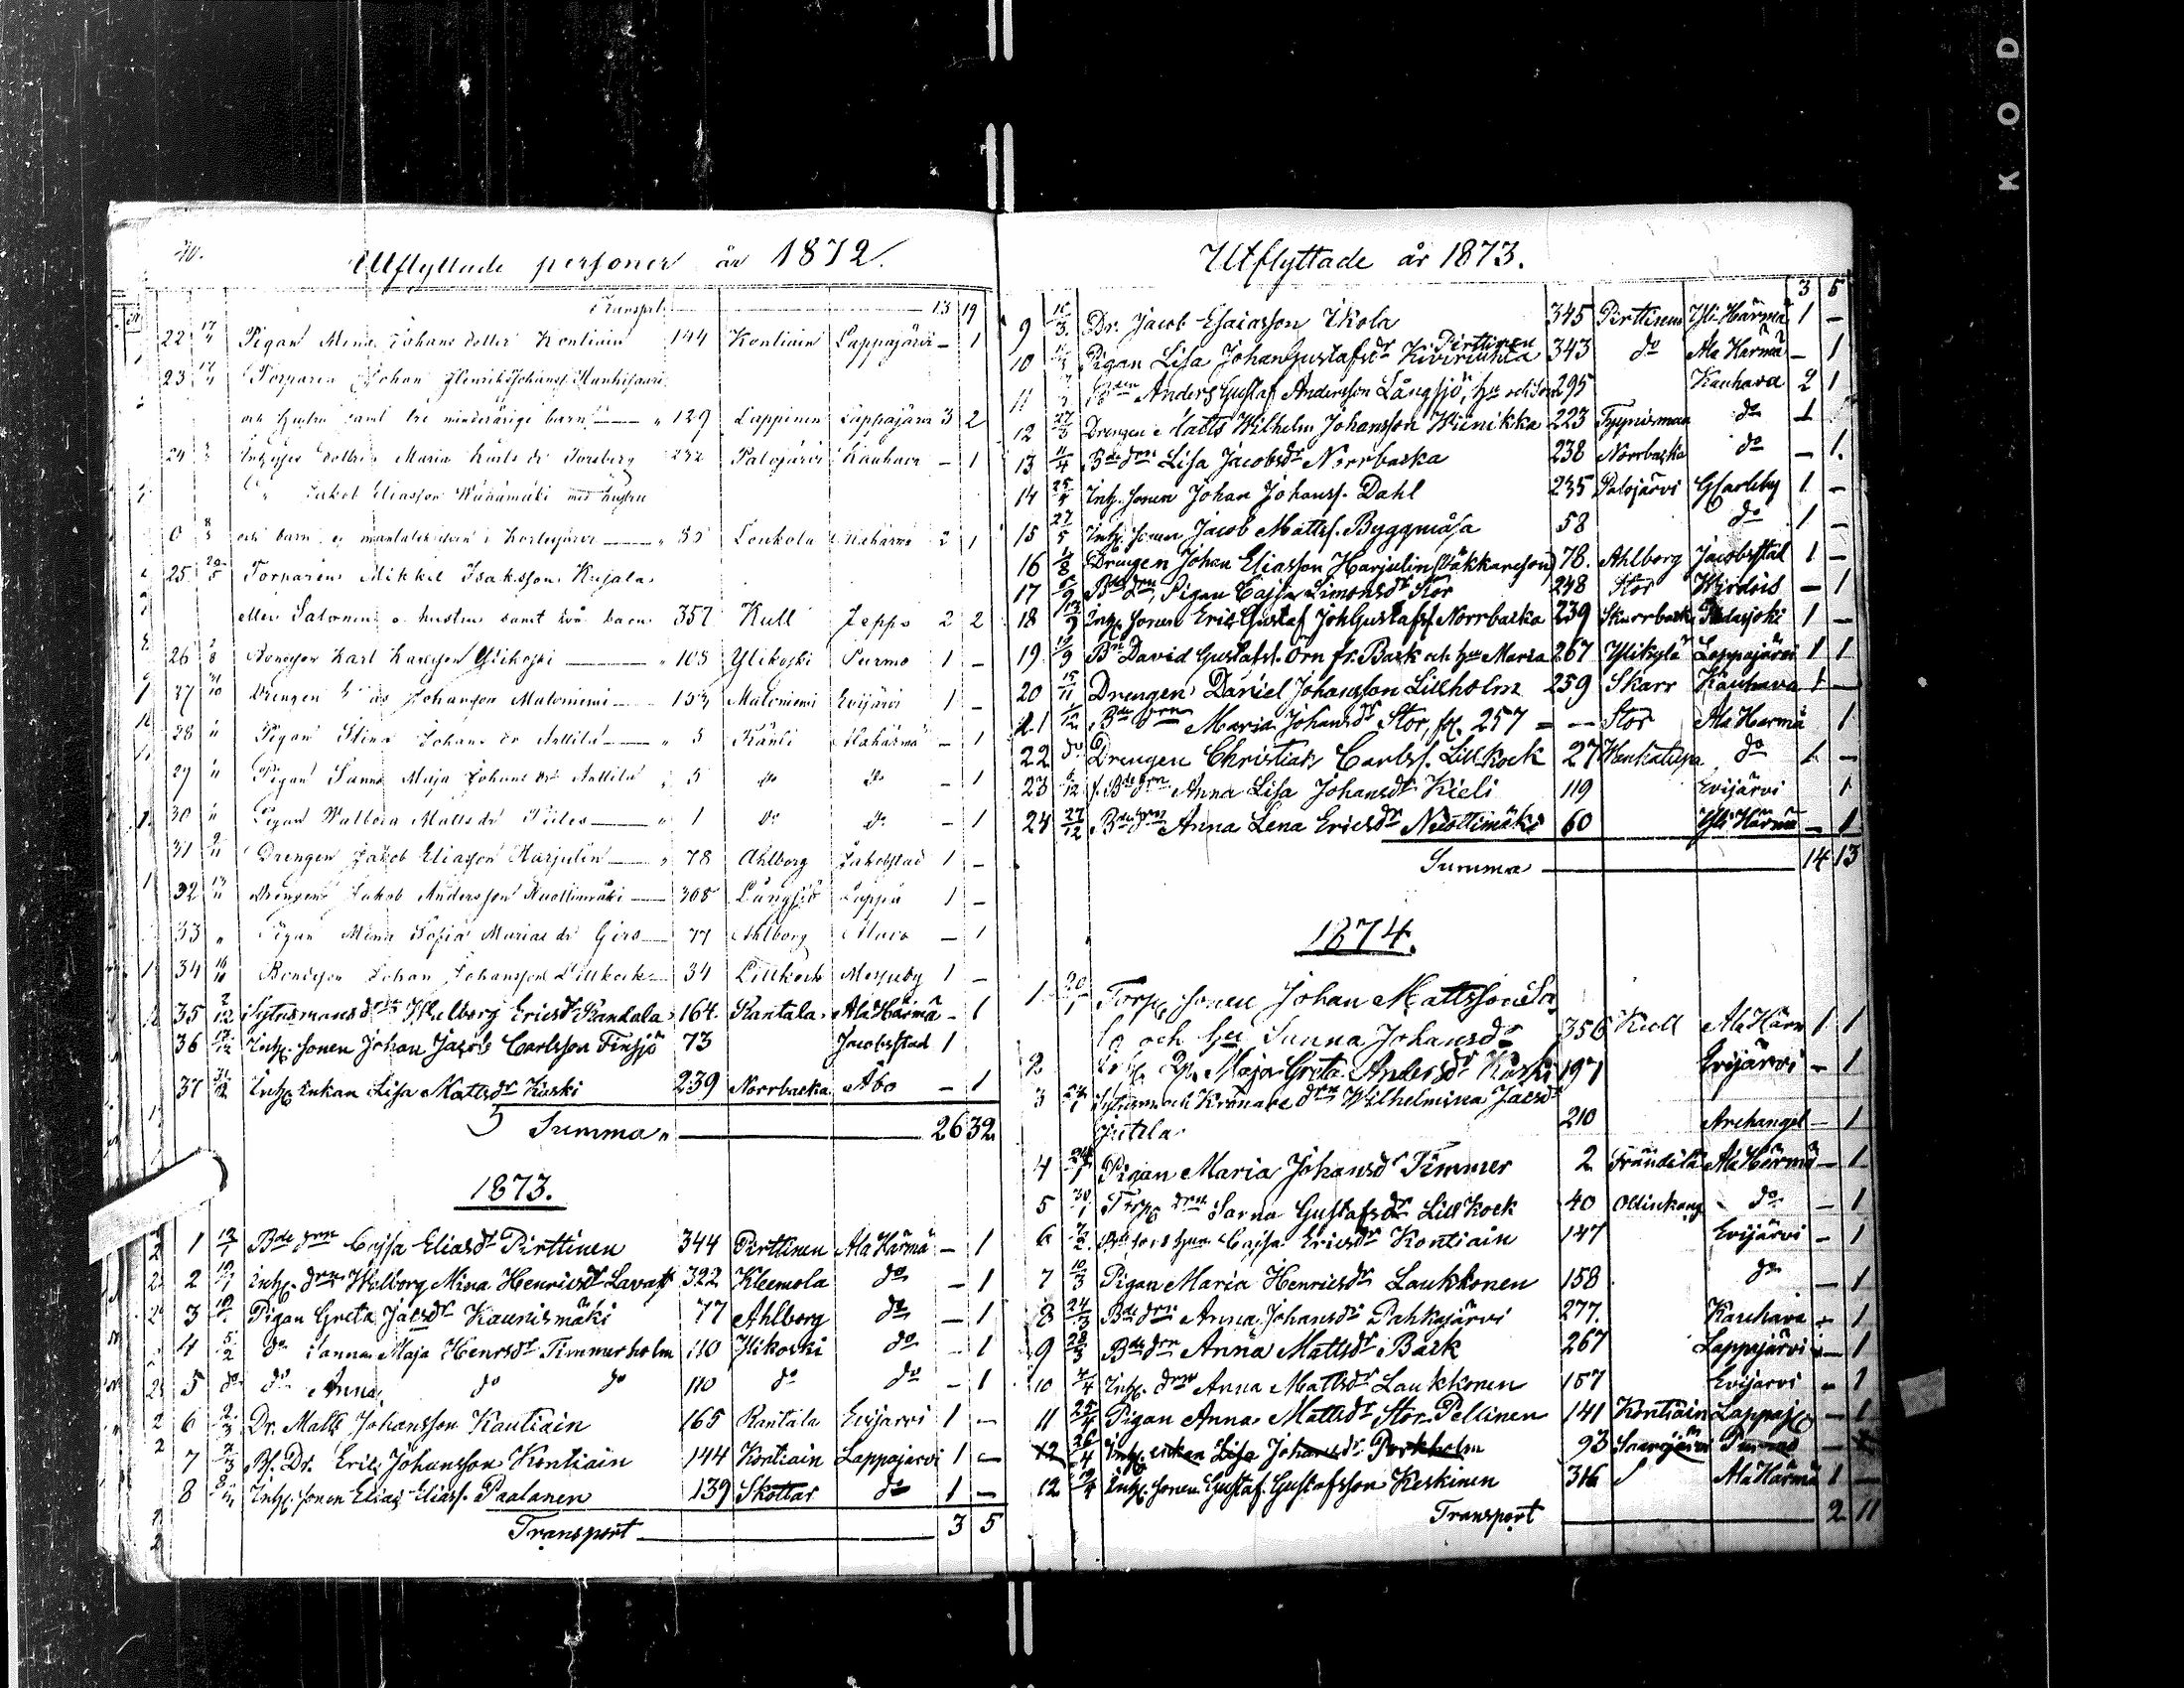 40.
Utflyttade personer år 1872.
Transport 13 19
22 17/4 Pigan Mina Johansdotter Kontiain 144 Kontiain Lappajärvi — 1
23 Torparen Johan Henrik Johanss.
och hustru samt tre minderåriga barn „ 129 Lappinen Lappajärvi 3 2
24 Maria Karls dr Forsberg 232 Palojärvi Kauhava — 1
Jakob Eliasson Wäinämäki med hustru
och barn, ej mantalsskrifven i Kortesjärvi „ 55 Loukola Alahärmä 2 1
25 20/5 Torparen Mikkel Isaksson Kujala
eller Salonen o. hustru samt två barn 357 Kull Jeppo 2 2
26 Bondeson Karl Karlsson Ylikoski „ 105 Ylikoski Purmo 1 —
27 31/10 Drengen Johansson Maloniemi 153 Maloniemi Evijärvi 1 —
28 „ Pigan Stina Johans dr Anttila „ 5 Känli Alahärmä — 1
29 „ Pigan Sanna Maja Johans dr Anttila „ 5 do do — 1
30 „ Pigan Walbora Matts dr „ 1 do do — 1
31 Drengen Jakob Eliasson Harjulin „ 78 Ahlborg Jakobstad 1 —
32 Drengen Jakob Andersson Nuottimäki 305 Långsjö Lappo 1 —
33 „ Pigan Mina Sofia Marias dr Girs 77 Ahlborg — 1
34 Bondeson Johan Johansson Lillkock 34 Lillkock Munsala 1 —
35 2/12 Sytnismansdrn Walborg Ericsdr Randala 164. Rantala Ala Härmä — 1
36 Inhs. sonen Johan Jacob Carlsson Finsjö 73 Jacobstad 1
37 31/12 Inhs. enkan Lisa Mattsdr Kaski 239 Norrbacka Åbo — 1
Summa 26 32
1873.
1 12/1 Bde drn Cajsa Eliasdr Pirttinen 344 Pirttinen Ala Härmä — 1
2 19/1 Inhs. drn Walborg Mina Henricsdr Lavast 322 Kleemola do — 1
3 Pigan Greta Jacsdr Kaunismäki 77 Ahlborg do — 1
4 5/2 do Sanna Maja Henrsdr Timmerholm 110 Ylikoski do — 1
5 do do Anna do do 110 do do — 1
6 2/3 Dr. Matts Johansson Kautiain 165 Rantala Evijärvi 1 —
7 2/3 Bs. Dr. Eric Johansson Kontiain 144 Kontiain Lappajärvi 1 —
8 Inhs. sonen Elias Eliass. Paalanen 139 Skottar do 1 —
Transport 3 5
Utflyttade år 1873.
3 5
9 Dr. Jacob Esaiasson Ikola 345 Pirttinen Yli-Härmä 1 —
Pirttinen
10 Pigan Lisa JohanGustafsdr Kivirinta 343 do Ala Härmä — 1
11 Anders Gustaf Andersson Långsjö, hu och son 295 Kauhava 2 1
12 27/3 Drengen Matts Wilhelm Johansson Wienikka 223 Tyynismaa do 1
13 11/4 Bde drn Lisa Jacobsdr Norrbacka 238 Norrbacka do — 1.
14 25/4 Inhs. sonen Johan Johanss. Dahl 235 Palojärvi GCarleby 1 —
15 27/5 Inhs. sonen Jacob Mattss. Byggmäsa 58 do 1 —
16 1/8 Drengen Johan Eliasson Harjulin (Wäkkareson) 78. Ahlborg Jacobsstad 1 —
17 5/9 Bde drn, Pigan Cajsa Simonsdr Stor 248 Stor Wirdois — 1
18 13/9 Inhs. sonen Eric Gustaf JohGustafss. Norrbacka 239 Skarrback 1 —
19 19/9 Bn David Gustafss. Örn fr. Back och hu Maria 267 Ylikylä Lappajärvi 1 1
20 15/11 Drengen Daniel Johansson Lillholm 259 Skarr Kauhava 1 —
21 1/12 Bde drn Maria Johansdr Stor, fol. 257 = — Stor Ala Härmä 1
22 do Drengen Christian Carlss. Lillkock 27 do 1 —
23 6/12 f. Bde drn Anna Lisa Johansdr Kieli 119 Evijärvi 1
24 27/12 Bde drn Anna Lena Ericsdr Nuottimäki 60 Yli Härmä — 1
Summa 14 13
1874.
1 20/1 Torp. sonen Johan Mattsson Sa
lo och hu Sanna Johansdr 356 Kull Ala Härm 1 1
2 Maja Greta Andersdr Kaski 197 Evijärvi — 1
3 Sytnism. och Krönare drn Wilhelmina Jacsdr
Jutila 210 Archangel — 1
4 Pigan Maria Johansdr Timmer 2 Frändilä Ala Härmä — 1
5 30/1 Torp. drn Sanna Gustafsdr Lillkock 40 do — 1
6 Cajsa Ericsdr Kontiain 147 Evijärvi — 1
7 10/3 Pigan Maria Henricsdr Laukkonen 158 do — 1
8 24/3 Bde drn Anna Johansdr Pahkajärvi 277. Kauhava — 1
9 28/3 Bde drn Anna Mattsdr Back 267 Lappajärvi — 1
10 4/4 Inhs. drn Anna Mattsdr Laukkonen 157 Evijärvi — 1
11 25/4 Pigan Anna Mattsdr Stor-Pellinen 141 Kontiain Lappaj. — 1
12 26/4 Inhs. enkan Lisa Johansdr Porkholm 93 Saarijärvi Purmo — 1
12 Inhs. sonen Gustaf Gustafsson Keskinen 316 Ala Härmä 1 —
Transport 2 11
KOD